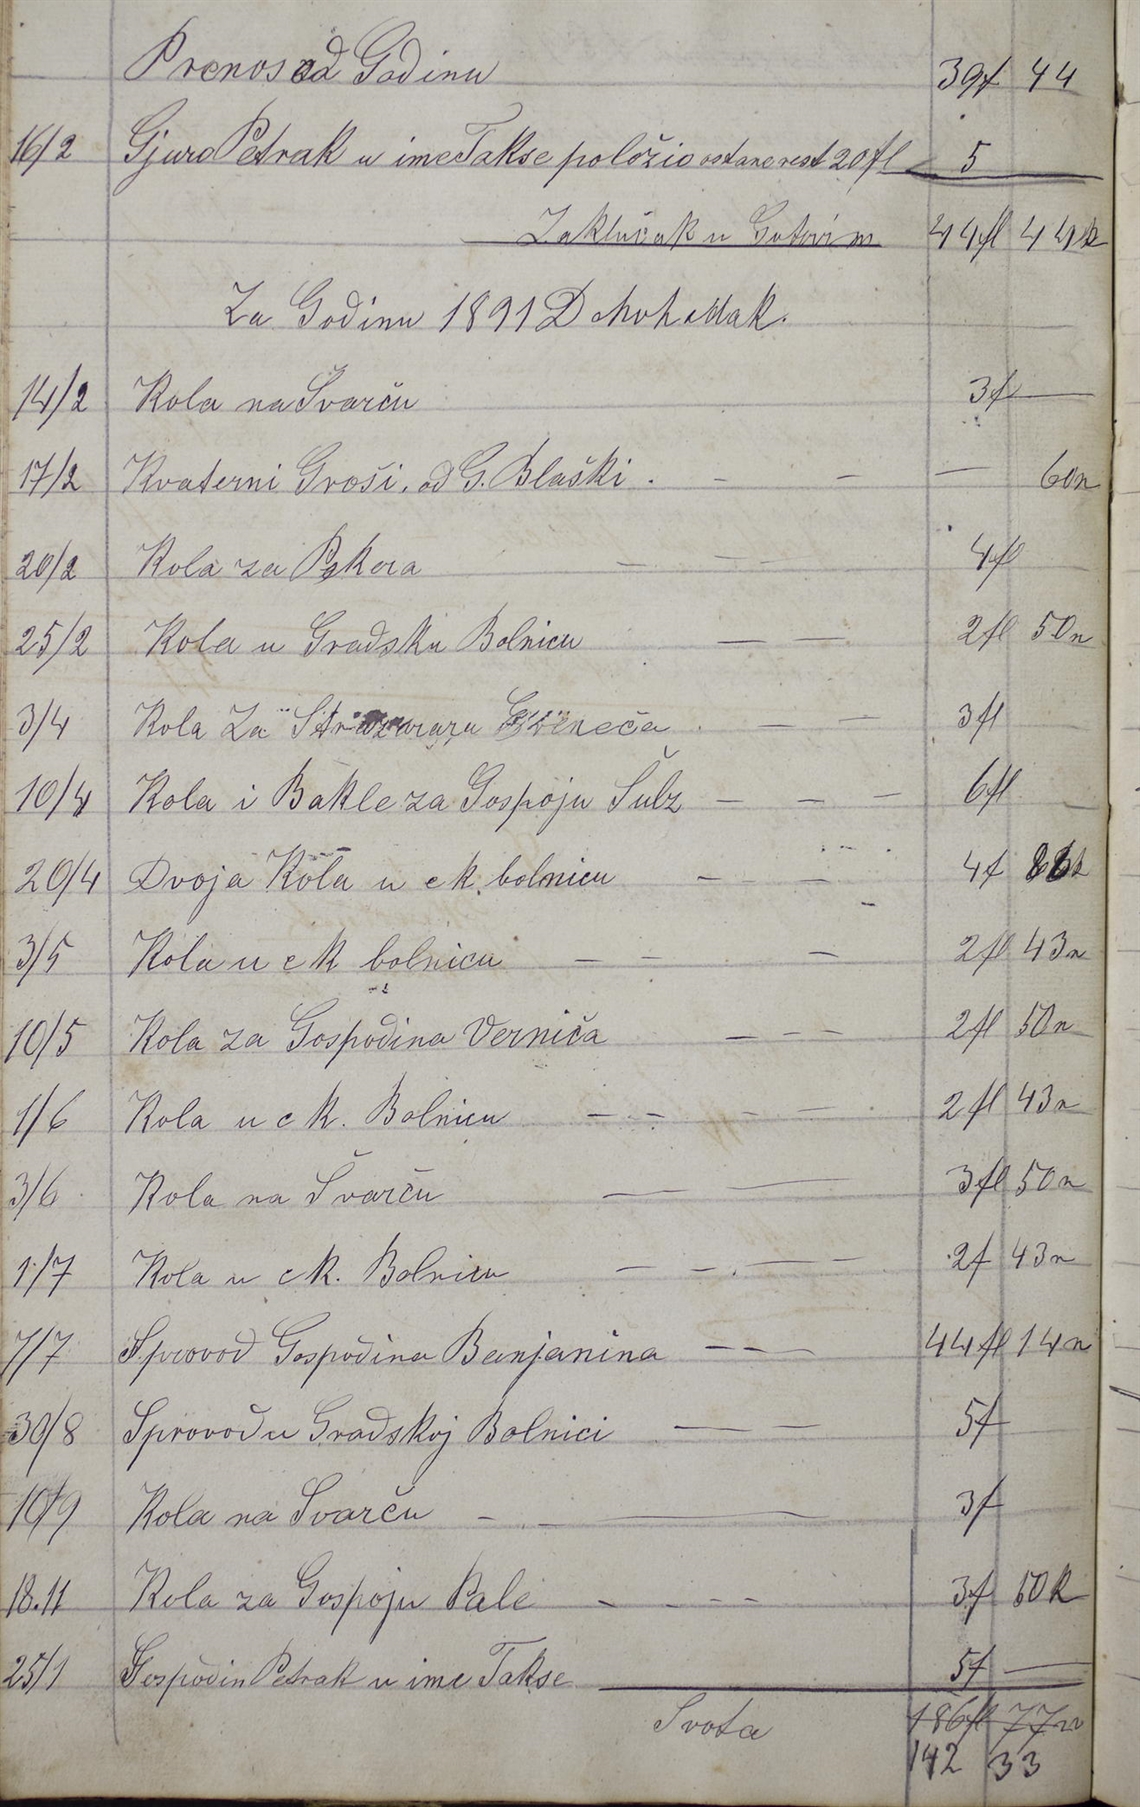 Prenos od Godinu 39f 44
16/2 Gjuro Petrak u ime Takse položio ostane rest 20 fl 5
Zaključak u Gotovim 44fl 44k
Za Godinu 1891
14/2 Kola na Švarču 3f —
17/2 Kvaterni Groši, od G. Blaški . - - — 60n
20/2 Kola za 4fl
25/2 Kola u Gradsku Bolnicu — — 2fl 50n
3/4 Kola Za — — 3fl
10/4 Kola i Bakle za Gospoju Šulz — — — 6fl
20/4 Dvoja Kola u c k. bolnicu — — 4f
3/5 Kola u c k bolnicu — — — 2fl 43n
10/5 Kola za Gospodina Verniča — — — 2fl 50n
1/6 Kola u c k. Bolnicu — — — — 2fl 43n
3/6 Kola na Švarču — — 3fl 50n
1/7 Kola u c k. Bolnicu — — — — 2f 43n
7/7 Sprovod Gospodina Banjanina — — — 44fl 14n
30/8 Sprovod u Gradskoj Bolnici — — 5f
10/9 Kola na Svarču — — — 3f
18.11 Kola za Gospoju Pale — — — — 3f 50k
25/1 Gospodin Petrak u ime Takse 5f —
Svota 186fl 77n
142 33